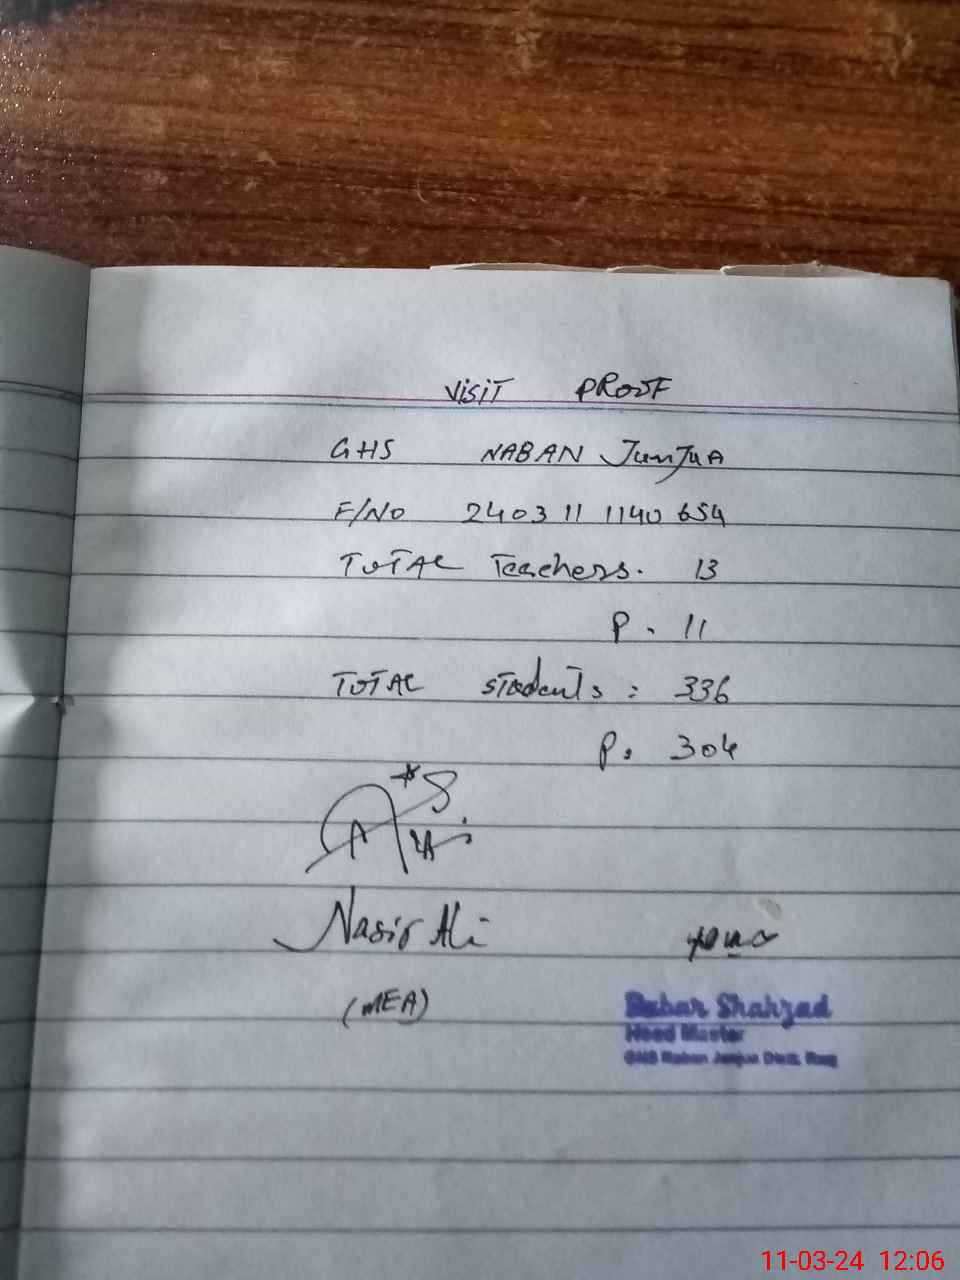 VISIT PROOF
GHS NABAN JUNJUA
F/NO 2403 11 1140 654
TOTAL Teachers. 13
P. 11
TOTAL Students : 336
P. 304
Nasir Ali
(MEA)
Babar Shahzad
Head Master
GHS Naban Janjua Distt.
11-03-24 12:06